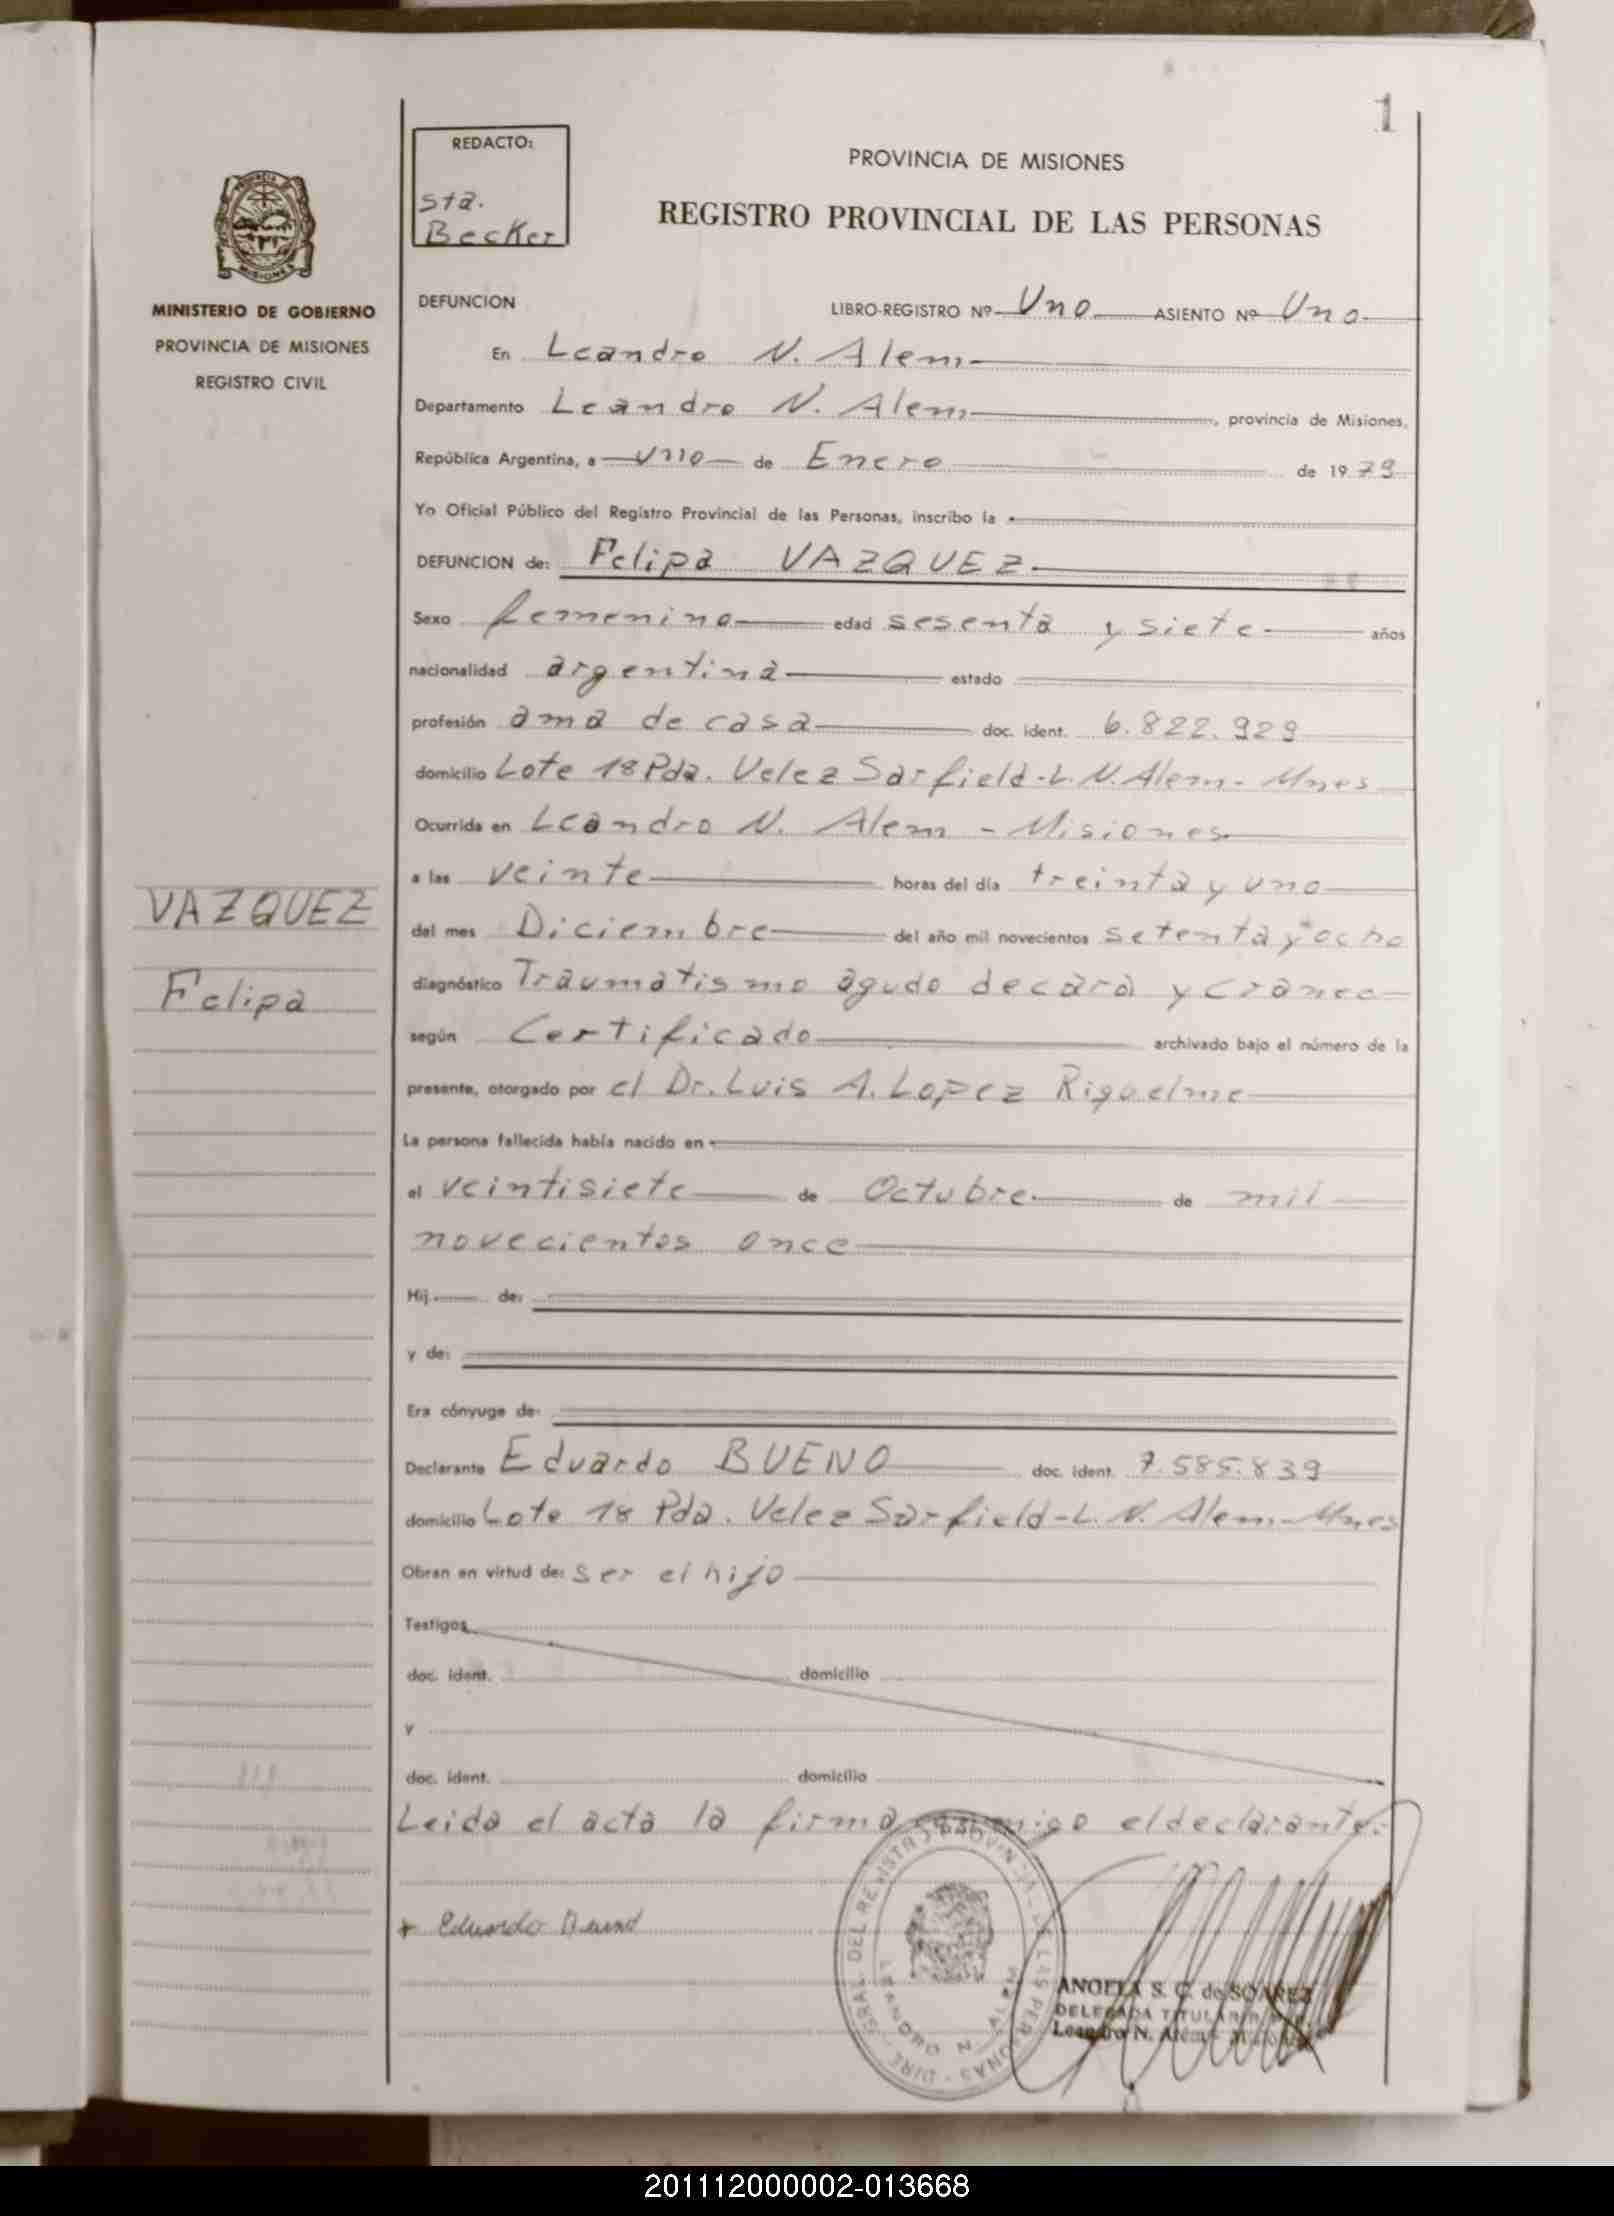 1
REDACTO:
Sta.
Becker
PROVINCIA DE MISIONES
REGISTRO PROVINCIAL DE LAS PERSONAS
PROVINCIA DE
MISIONES
MINISTERIO DE GOBIERNO
PROVINCIA DE MISIONES
REGISTRO CIVIL
VAZQUEZ
Felipa
DEFUNCION LIBRO-REGISTRO Nº Uno ASIENTO Nº Uno
En Leandro N. Alem
Departamento Leandro N. Alem, provincia de Misiones,
República Argentina, a uno de Enero de 1979
Yo Oficial Público del Registro Provincial de las Personas, inscribo la
DEFUNCION de: Felipa VAZQUEZ
Sexo femenino edad sesenta y siete años
nacionalidad argentina estado
profesión ama de casa doc. ident. 6.822.929
domicilio Lote 18 Pda. Velez Sarfield-L.N.Alem-Mnes
Ocurrida en Leandro N. Alem - Misiones
a las veinte horas del día treinta y uno
del mes Diciembre del año mil novecientos setenta y ocho
diagnóstico Traumatismo agudo de cara y craneo
según Certificado archivado bajo el número de la
presente, otorgado por el Dr. Luis A. Lopez Riquelme
La persona fallecida había nacido en
el veintisiete de Octubre de mil
novecientos once
Hij de:
y de:
Era cónyuge de:
Declarante Eduardo BUENO doc. ident. 7.585.839
domicilio Lote 18 Pda. Velez Sarfield-L.N. Alem-Mnes
Obran en virtud de: ser el hijo
Testigos
doc. ident. domicilio
y
doc. ident. domicilio
Leida el acta la firma conmigo el declarante.
+ Eduardo Bueno
DIRE. GRAL DEL REGISTRO PROVINCIAL DE LAS PERSONAS
LEANDRO N. ALEM
ANGELA S. C. de SOAREZ
DELEGADA TITULAR
Leandro N. Alem - Misiones
201112000002-013668